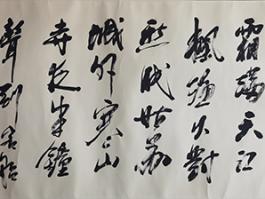 霜滿天江
楓漁火對
愁眠姑蘇
城外寒山
寺夜半鐘
聲到客船